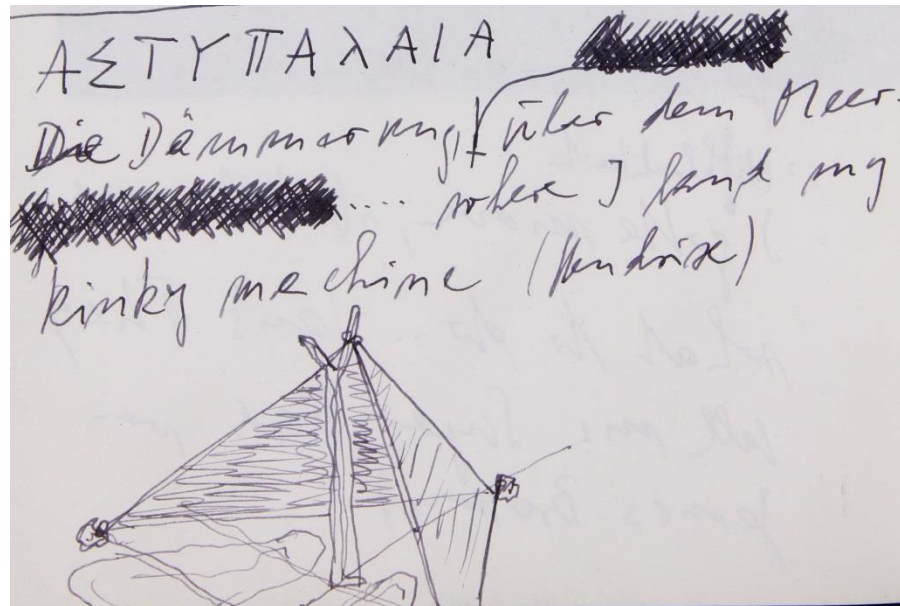 ΑΣΤΥΠΑλΑΙΑ
Die Dämmerung über dem Meer.
..... where I park my
kinky machine (Hendrix)